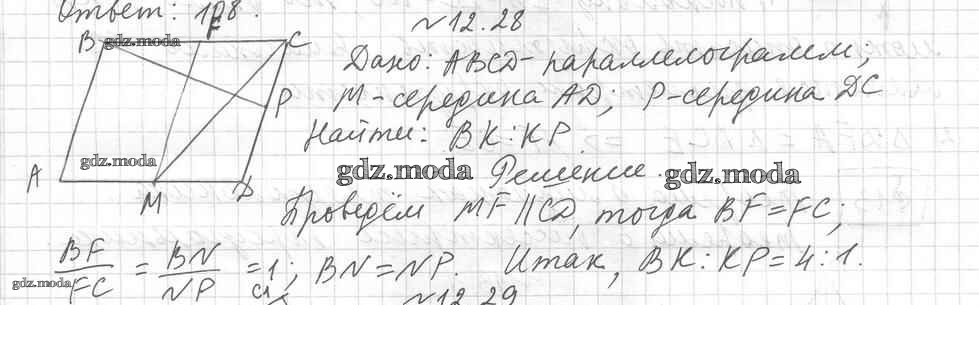 Ответ: 108.
N12.28
B F C
gdz.moda
Дано: ABCD-параллелограмм;
P
M-середина AD; P-середина DC
Найти: BK:KP.
gdz.moda
A M D
gdz.moda Решение. gdz.moda
Проведём MF || CD, тогда BF=FC;
BF/FC = BN/NP = 1; BN=NP. Итак, BK:KP=4:1.
gdz.moda
N12.29